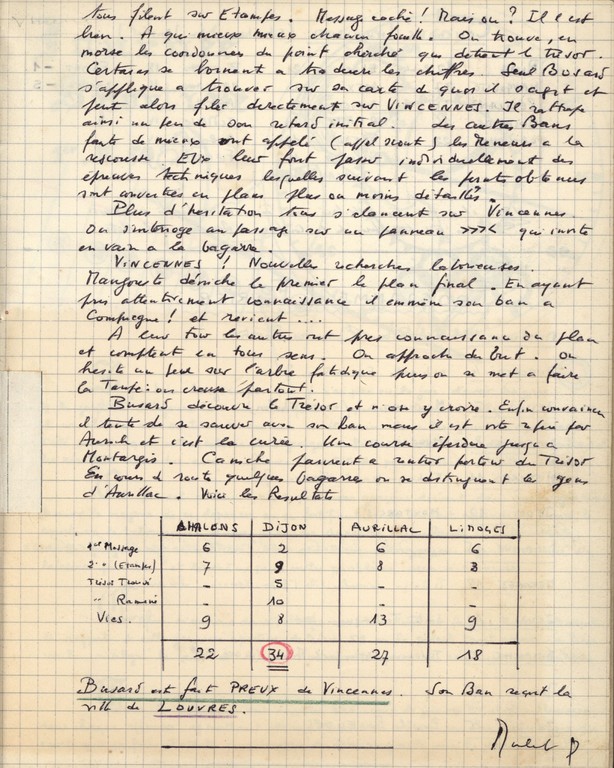 tous filent sur Etampes. Message caché! Mais où? Il est
bien. A qui mieux mieux chacun fouille. On trouve, en
morse les coordonnées du point cherché qui detient le trésor.
Certains se bornent a traduire les chiffres. Seul Busard
s'applique a trouver sur sa carte de quoi il s'agit et
peut alors filer directement sur VINCENNES. Il rattrape
ainsi un peu de son retard initial. Les autres Bans
faute de mieux ont appelé (appel scout) les Meneurs a la
rescousse. EUX leur font passer individuellement des
épreuves techniques lesquelles suivant les points obtenus
sont converties en plans plus ou moins détaillés.
Plus d'hesitation tous s'elancent sur Vincennes
On au passage sur un panneau >>>< qui invite
en vain a la bagarre.
VINCENNES! Nouvelles recherches laborieuses.
Mangouste déniche le premier le plan final. En ayant
pris attentivement connaissance il emmène son ban a
Compiegne! et revient ....
A leur tour les autres ont pris connaissance du plan
et comptent en tous sens. On approche du but. On
hesite un peu sur l'arbre fatidique puis on se met a faire
la Taupe: on creuse partout.
Busard découvre le Trésor et n'ose y croire. Enfin convaincu
il tente de se sauver avec son ban mais il est vite par
et c'est la curée. Une course éperdue jusqu'a
Montargis. Caniche parvient a rentrer porteur du Trésor
En cours de route quelques bagarres ou se distinguent les gens
d'Aurillac. Voici les Resultats
CHALONS DIJON AURILLAC LIMOGES
1er Message 6 2 6 6
2e " (Etampes) 7 9 8 3
Trésor Trouvé - 5 - -
" Ramené - 10 - -
Vies. 9 8 13 9
22 34 27 18
Busard est fait PREUX de Vincennes. Son Ban reçoit la
ville de LOUVRES.